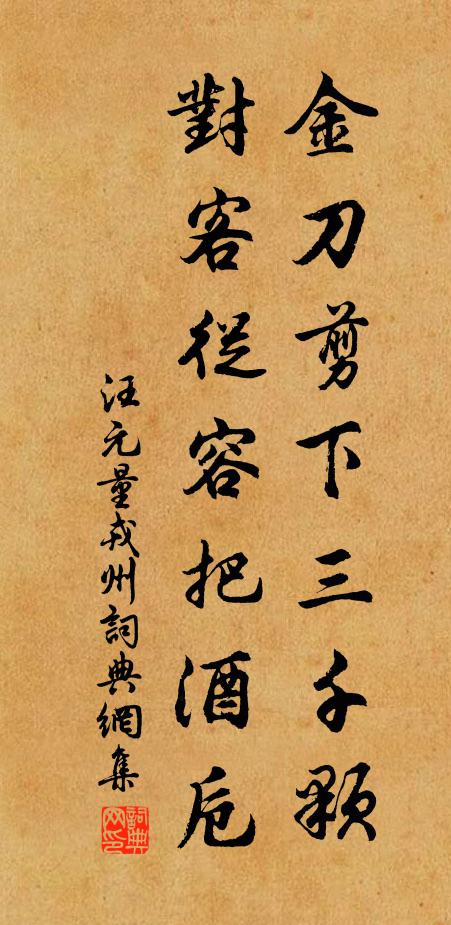 金刀剪下三千顆
對客從容把酒卮
汪元量戎州詞典網集
詞典网印